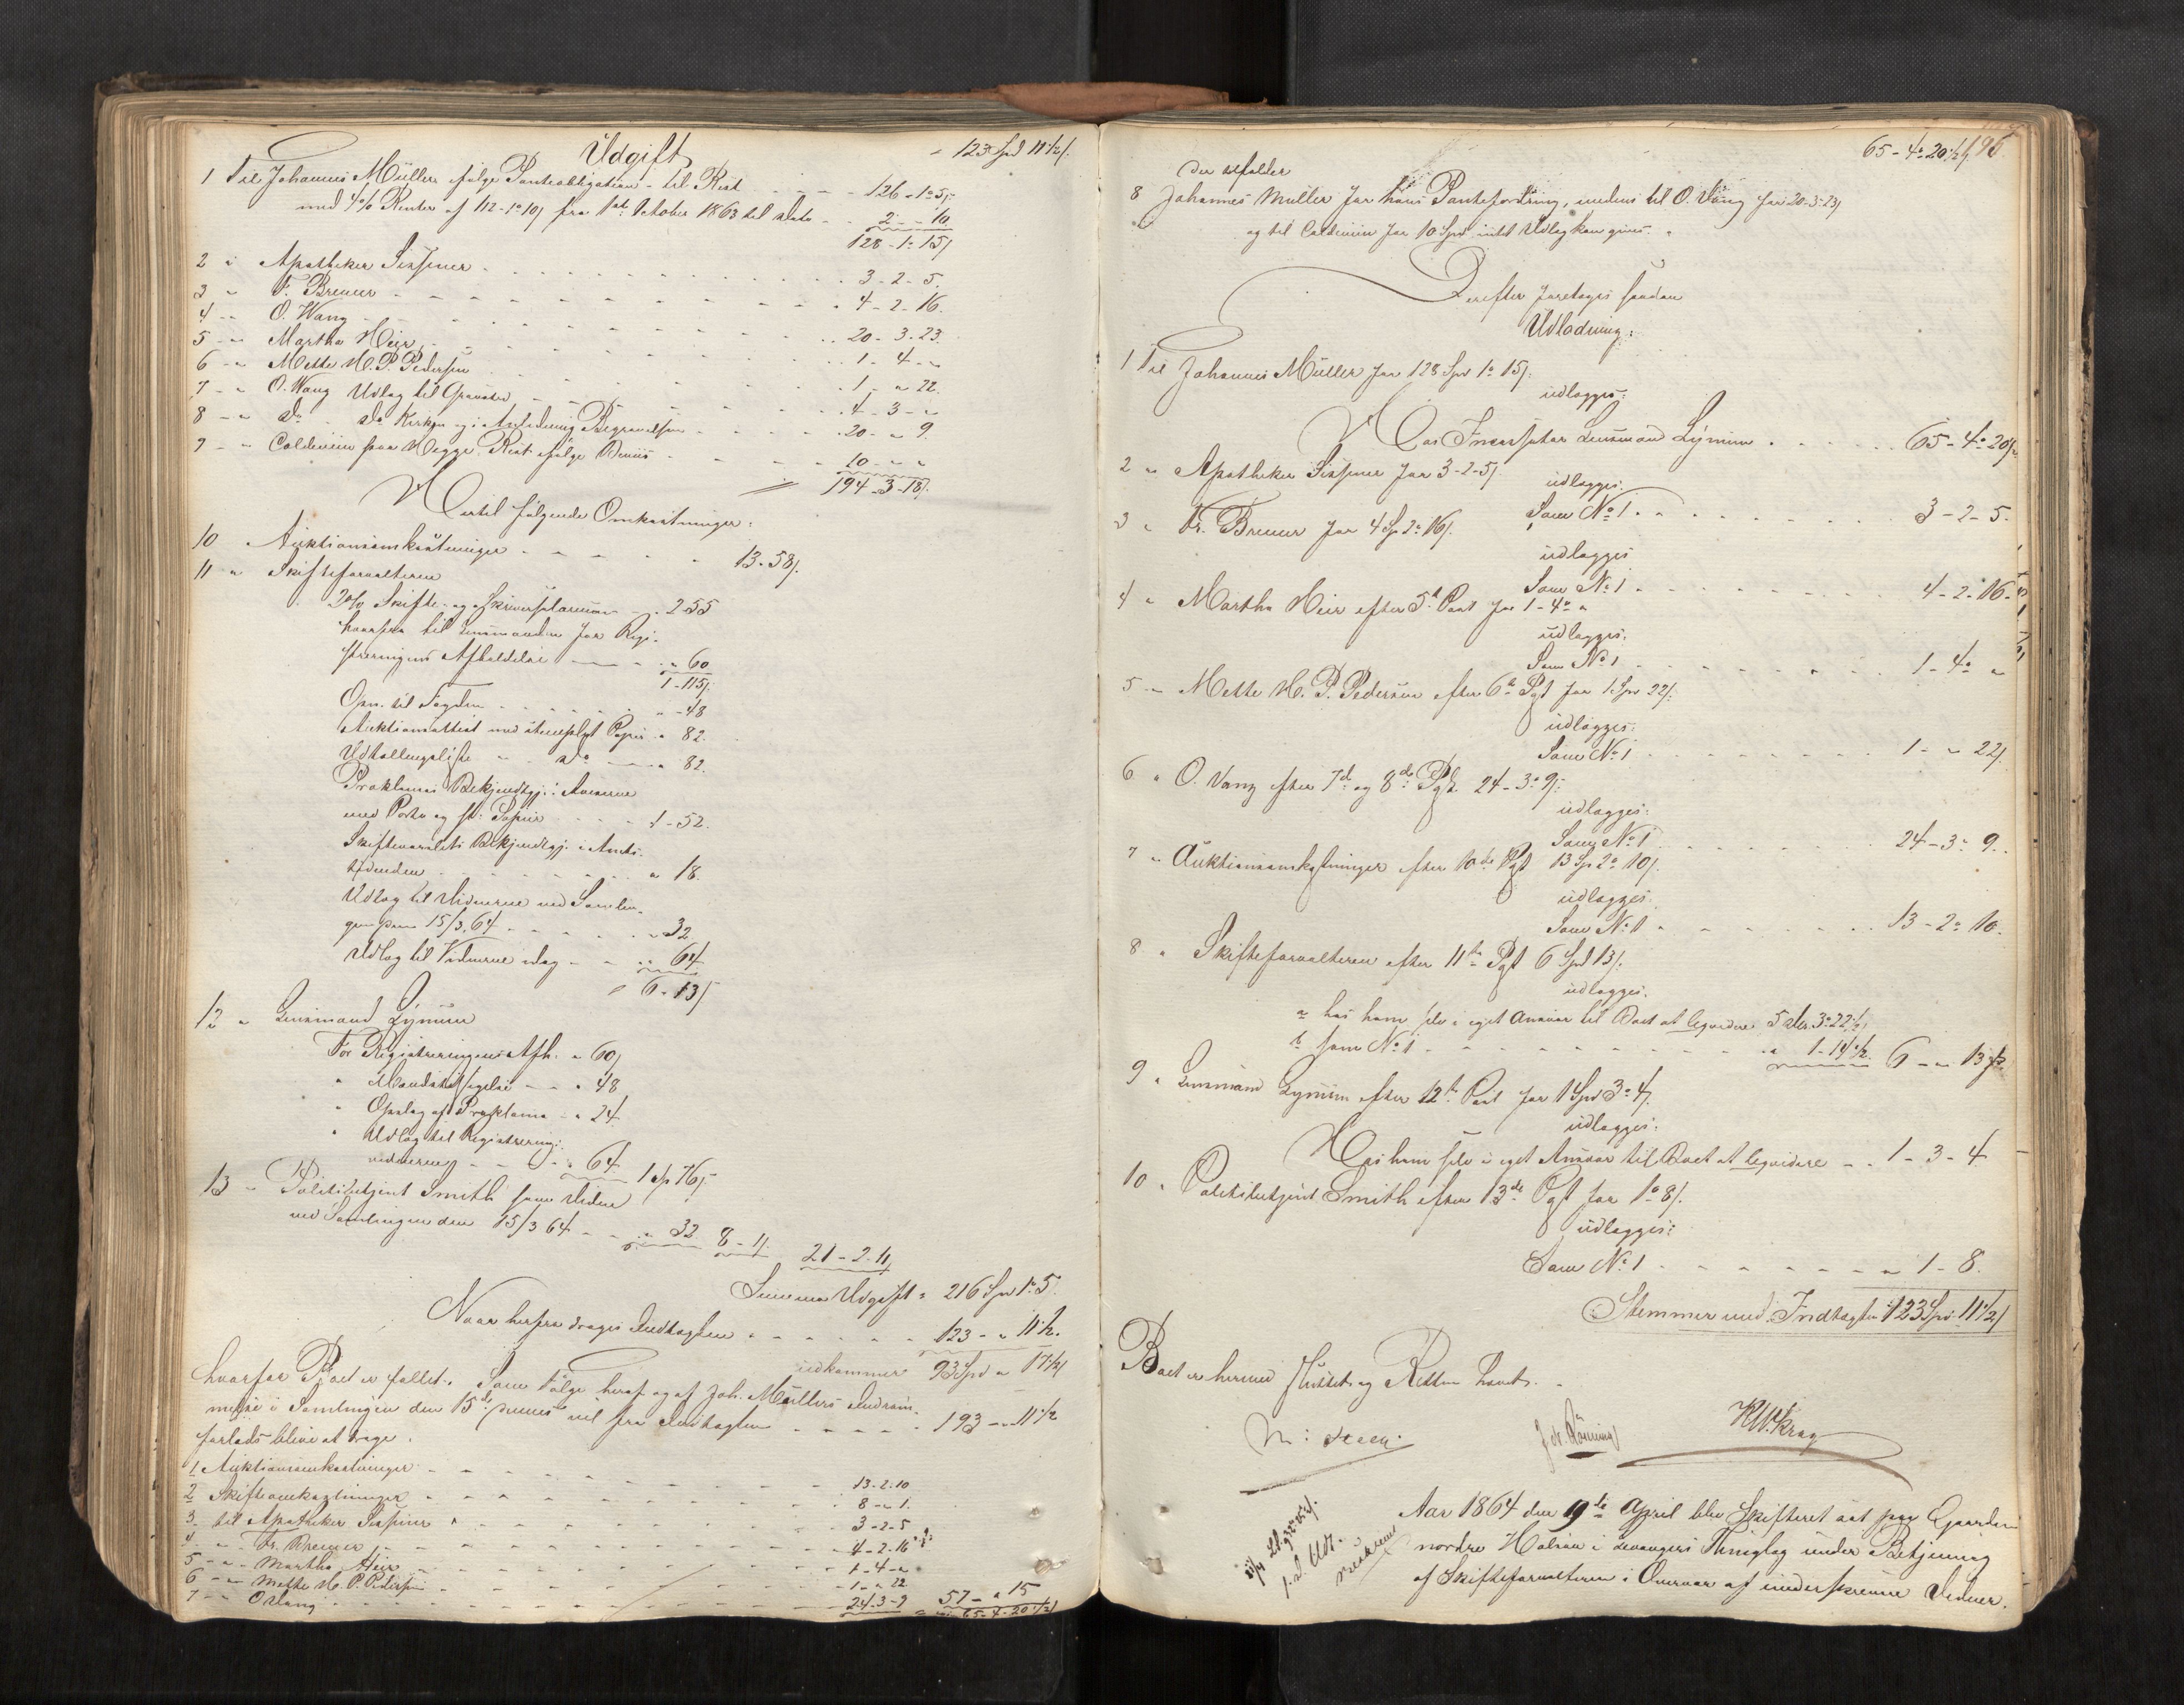 - 123 Spd 11½ s.
Udgift
1 Til Johannes Müller ifølge Panteobligation - til Rest - - - - 126 - 1 - 5 s
med 4% Renter af 112-1-101 fra 1ste October 1863 til Dato - - 2 - - 10
128 - 1 - 15 s
2 " Apotheker - - - 3 - 2 - 5.
3 " F. Bremer - - - 4 - 2 - 16.
4 " O. Wang - - - 20 - 3 - 23.
5 " Martha Heir - - - 1 - 4 - "
6 " Mette H. P. Pedersen - - - 1 - " 22.
7 " O. Wang Udlæg til - - - 4 - 3 - "
8 " do do Kirken og i Anledning Begravelsen - - - 20 - " 9.
9 " Rest ifølge - - - 10 - " "
194 - 3 - 18 s.
Hertil følgende Omkostninger:
10 Auktionsomkostninger - - - 13 - 58 s.
11 " Skifteforvalteren
2% Skifte- og - 2-55
hvorfra til Lensmanden for Regi-
streringens Afholdelse - - " 60
1-115 s.
til Fogden - - - " - 48
Auktionsattest med stemplet Papir " 82.
Udkallingsliste " do - - " 82.
Proklamas Bekjendtgj. i Aviserne
med Porto og st. Papir - - - 1 - 52.
Bekjendtgj. i Amts-
tidenden - - - " 18.
Udlæg til Vidnerne ved Samlin-
gen den 15/3 64 - - - " 32
Udlæg til Vidnerne idag - - " 64
6 - 13 s
12 " Lensmand
For Registreringens Afh. " 60 s
" - - " 48
" Opslag af Proklama - " 24
" Udlæg til Registrerings-
vidnerne - - - " 64 1 Sp 76 s
13 " Smith som Vidne
ved Samlingen den 15/3 64 - - " 32 8 - 1 s. 21 - 2 - 11
Summa Udgift = 216 Spd 1 - 5.
Naar herfra drages Indtægten - - - 123 - " 11½.
udkommer 93 Spd " 17½ s
hvorfor Boet er fallit. Som Følge heraf og af Joh. Müllers Indrøm-
melse i Samlingen den 15de vil fra Indtægten - - - 193 - " 11½
forlods blive at drage.
1 Auktionsomkostninger - - - 13 - 2 - 10
2 Skifteomkostninger - - - 8 - " 1.
3 til Apotheker - - - 3 - 2 - 5
4 " Fr. Bremer - - - 4 - 2 - 16
5 " Martha Heir - - - 1 - 4 - "
6 " Mette H. P. Pedersen - - - 1 - " 22
7 " O Vang - - - 24 - 3 - 9 57 - " 15
65 - 4 - 20½ s
65 - 4 - 20½ s 196.
der
8 Johannes Müller for hans Pantefordring, medens til O. Vang for 20-3-23 s
og til for 10 Spd intet Udlæg kan gives.
Derefter foretages saadan
Udlodning:
1 Til Johannes Müller for 128 Spd 1 - 15 s.
udlægges:
Hos Lensmand - - - 65 - 4 - 20½
2 " Apotheker for 3-2-5 s.
udlægges:
Som No 1. - - - 3 - 2 - 5.
3 " Fr. Bremer for 4 Sp 2 - 16 s.
udlægges
Som No 1 - - - 4 - 2 - 16.
4 " Martha Heir efter 5te Post for 1 - 4 - "
udlægges:
Som No 1 - - - 1 - 4 - "
5 " Mette H. P. Pedersen efter 6te Pgt for 1 Spd 22 s.
udlægges:
Som No 1 - - - 1 - " 22 s
6 " O. Vang efter 7de og 8de Pgt 24 - 3 - 9 s.
udlægges:
Som No 1 - - - 24 - 3 - 9.
7 " Auktionsomkostninger efter 10de Pgt 13 Sp 2 - 10 s.
udlægges.
Som No 1 - - - 13 - 2 - 10.
8 " Skifteforvalteren efter 11te Pgt 6 Spd 13 s.
udlægges.
a hos ham selv i eget Ansvar til Boet at liqvidere 3 - 22½
b som No 1 - - - " 1 - 14½ 6 - " 13
9 " Lensmand efter 12te Post for 1 Spd 3 - 4 s.
udlægges:
Hos ham selv i eget Ansvar til Boet at liqvidere - - 1 - 3 - 4
10 " Smith efter 13de Pgt for 1 - 8 s.
udlægges:
Som No 1 - - - " 1 - 8.
Stemmer med Indtægten 123 Spd 11½ s
Boet er hermed sluttet og Retten hævet.
Aar 1864 den 19de April blev Skifteret sat paa Gaarden
nordre i Thinglag under Betjening
af Skifteforvalteren i Overvær af underskrevne Vidner.